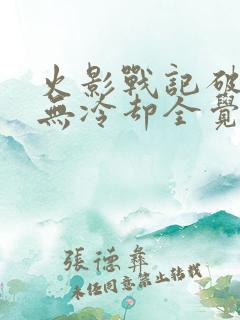 火影戰記破
無冷却全覺
張德彝
未经同意禁止转载